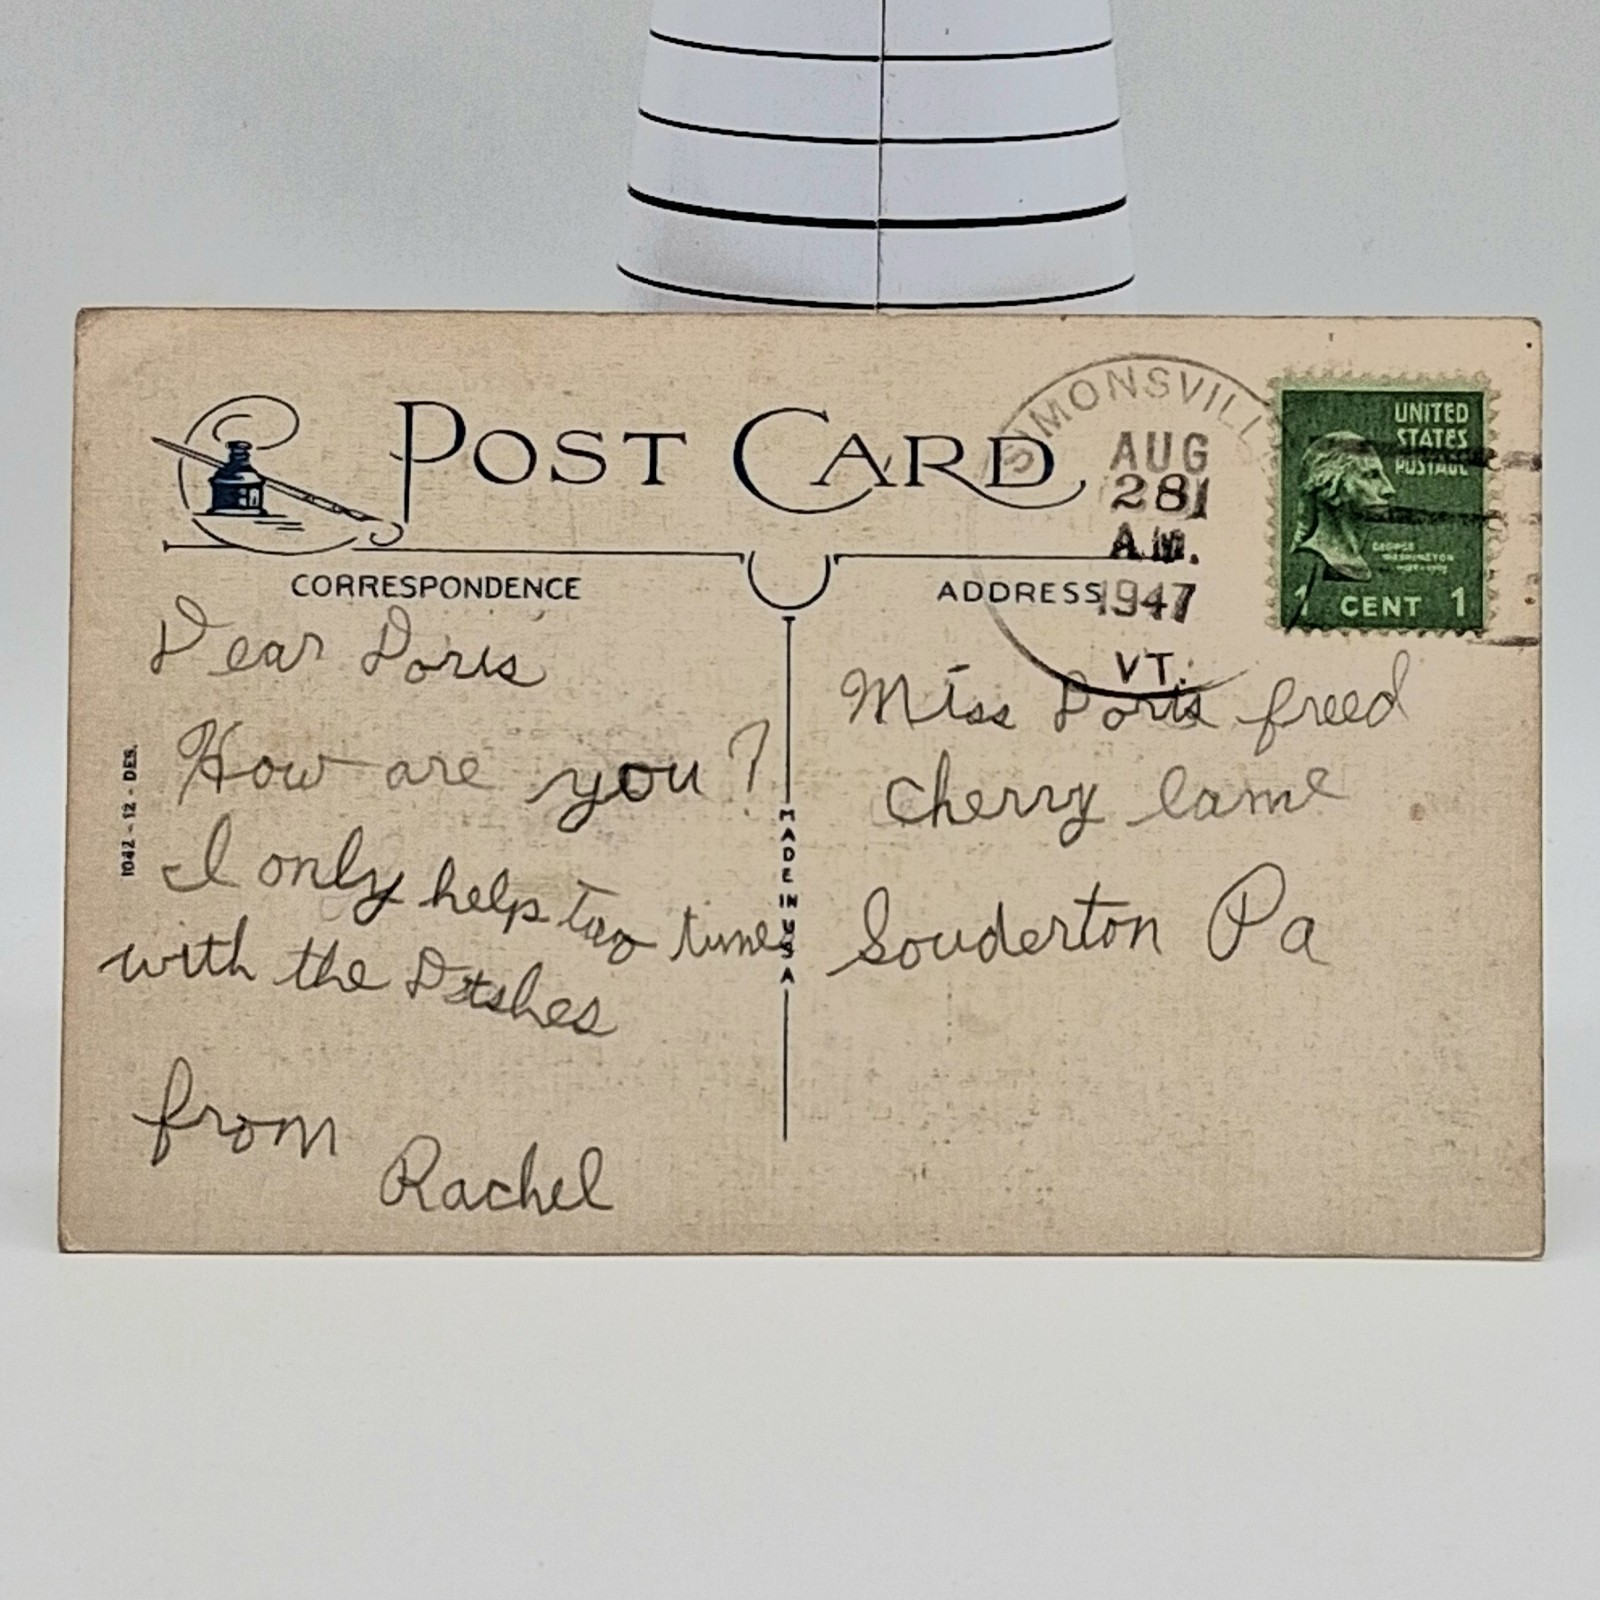 POST CARD
CORRESPONDENCE
ADDRESS
SIMONSVILL
AUG
28
A.M.
1947
VT.
UNITED
STATES
POSTAGE
GEORGE
WASHINGTON
1 CENT 1
Dear Doris
How are you?
I only help two times
with the Ditshes
from
Rachel
1042-12-DES.
MADE IN USA
Miss Doris freed
Cherry lame
Souderton Pa